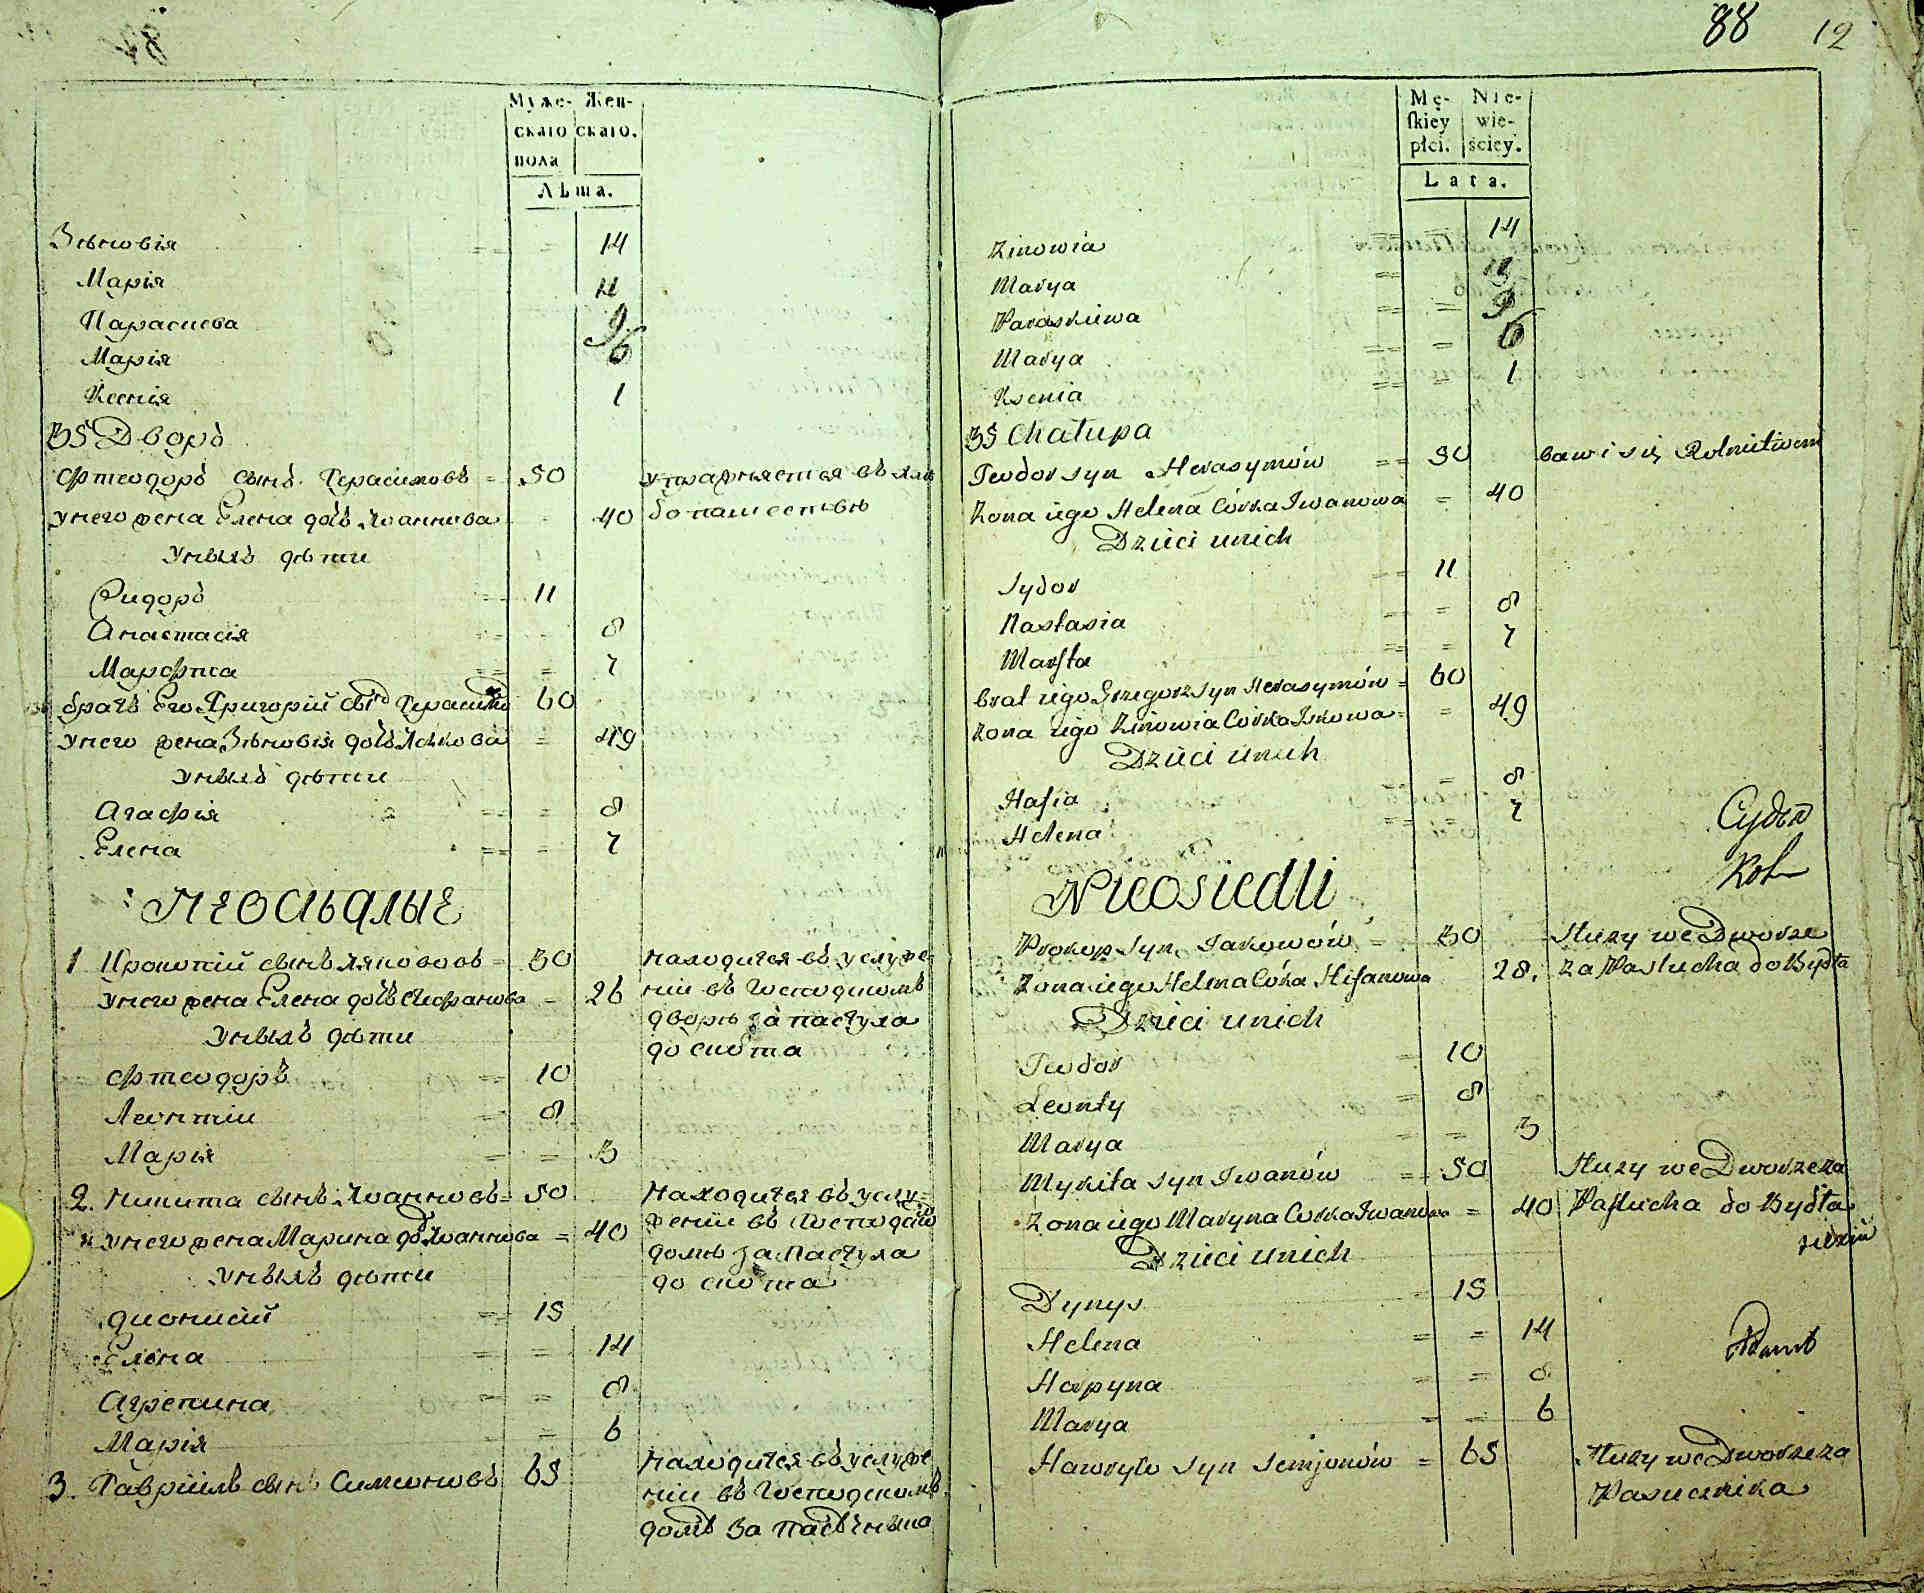 Муже- Жен-
скаго скаго.
пола
Лѣта.
Зѣновія = = 14
Марія 11
Параскева 9
Марія 6
Ксенія 1
35 Дворъ
Фтеодоръ сынъ Герасимовъ = 50 упражняется въ хлѣ
У него жена Елена дочь Іоаннова 40 бопашествѣ
У нихъ дѣти
Сидоръ 11
Анастасія 8
Марфта 7
братъ Его Григорій сынъ Герасимовъ 60
У него жена Зѣновія дочь Яськова = 49
У нихъ дѣти
Агафія = = 8
Елена = = 7
Неосѣдлые
1 Прокопій сынъ Якововъ = 30 находится въ услуже-
У него жена Елена дочь Стефанова = 26 ніи въ Господскомъ
У нихъ дѣти дворѣ за пастуха
до скота
Фтеодоръ = 10
Леонтіи 8
Марія = = 3
2. Никита сынъ Іоанновъ = 50 Находится въ услу-
У него жена Марина дочь Іоаннова = 40 женіи въ Господском
У нихъ дѣти домѣ за пастуха
до скота
Дионисій = 15
Елена = = 14
Агрепина = = 8
Марія = 6
3. Гавріилъ сынъ Симеоновъ 65 Находится въ услуже
ніи въ Господскомъ
домѣ за
88 12
Mę- Nie-
ſkiey wie-
płci. ściey.
Lata.
Zinowia 14
Marya
Paraskiewa = = 9
Marya = = 6
Ksenia = = 1
35 Chałupa
Teodor syn Herasymów = 50 bawi się Rolnictwem
Zona iego Helena Córka Iwanowa = 40
Dzieci u nich
Sydor = 11
Nastasia = = 8
Marfta = = 7
brat iego Grzegorz syn Herasymów = 60
Zona iego Zinowia Córka Iskowa = = 49
Dzieci u nich
Hafia = 8
Helena = = 7
Судья
Nieosiedli
Prokop syn Jakowów = 30 Służy we Dworze
Zona iego Helena Córka Stefanowa 28. za Pastucha do Bydła
Dzieci u nich
Teodor = 10
Leonty = 8
Marya = = 3
Mykita syn Iwanów = 50 Służy we Dworze za
Zona iego Maryna Corka Iwanowa = 40 Pastucha do Bydła
Dzieci u nich
Dynys = 15
Helena = = 14
Harpyna = = 8
Marya = = 6
Hawryło syn Semjonów = 65 Służy we Dworze za
Pasiecznika